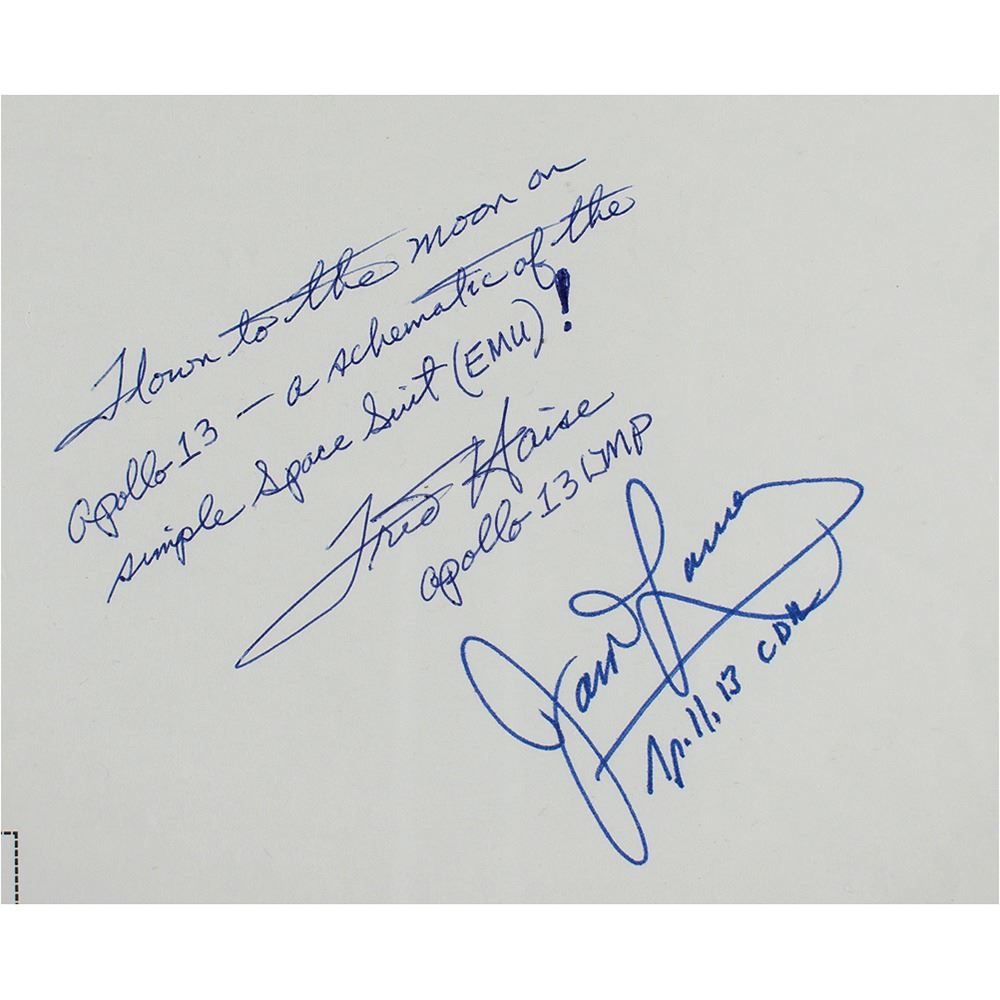 Flown to the Moon on
Apollo 13 — a schematic of the
simple Space Suit (EMU)!
Fred Haise
Apollo 13 LMP
James Lovell
Apollo 13 CDR